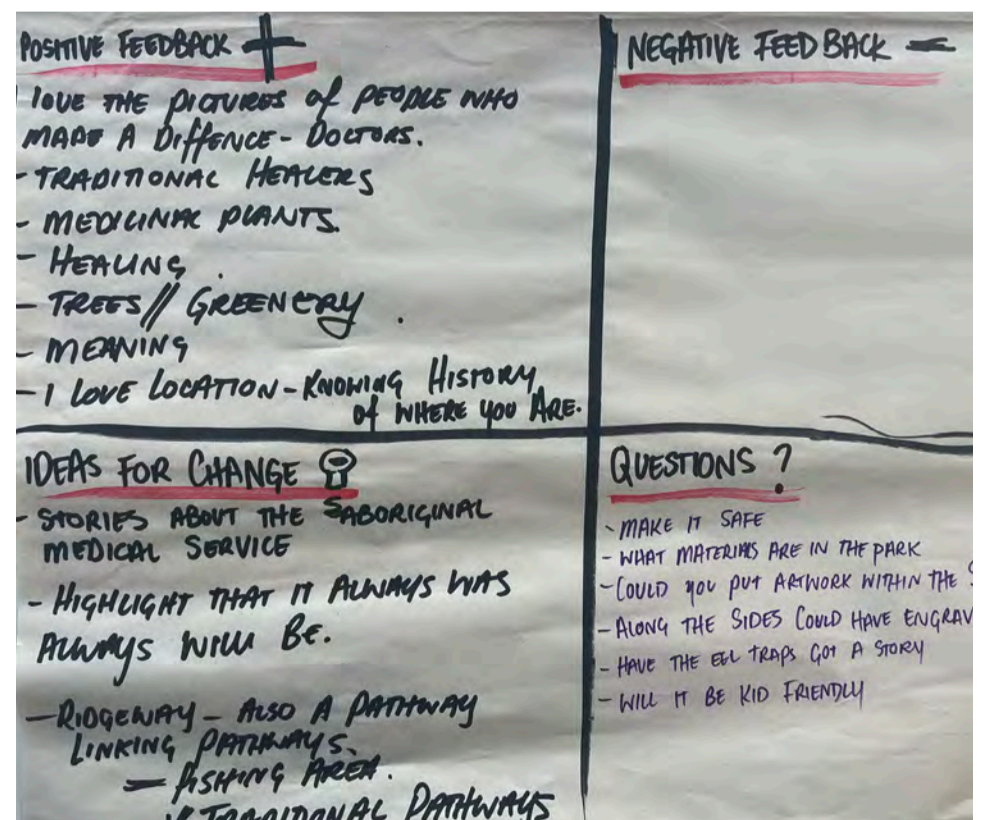 POSITIVE FEEDBACK +
I LOVE THE PICTURES OF PEOPLE WHO
MADE A DIFFENCE - DOCTORS.
- TRADITIONAL HEALERS
- MEDICINAL PLANTS.
- HEALING.
- TREES// GREENERY.
- MEANING
- I LOVE LOCATION - KNOWING HISTORY
OF WHERE YOU ARE.
NEGATIVE FEEDBACK -
IDEAS FOR CHANGE
- STORIES ABOUT THE ABORIGINAL
MEDICAL SERVICE
- HIGHLIGHT THAT IT ALWAYS WAS
ALWAYS WILL BE.
- RIDGEWAY - ALSO A PATHWAY
LINKING PATHWAYS.
- FISHING AREA.
TRADITIONAL PATHWAYS
QUESTIONS ?
- MAKE IT SAFE
- WHAT MATERIALS ARE IN THE PARK
- COULD YOU PUT ARTWORK WITHIN THE
- ALONG THE SIDES COULD HAVE ENGRAV
- HAVE THE EEL TRAPS GOT A STORY
- WILL IT BE KID FRIENDLY